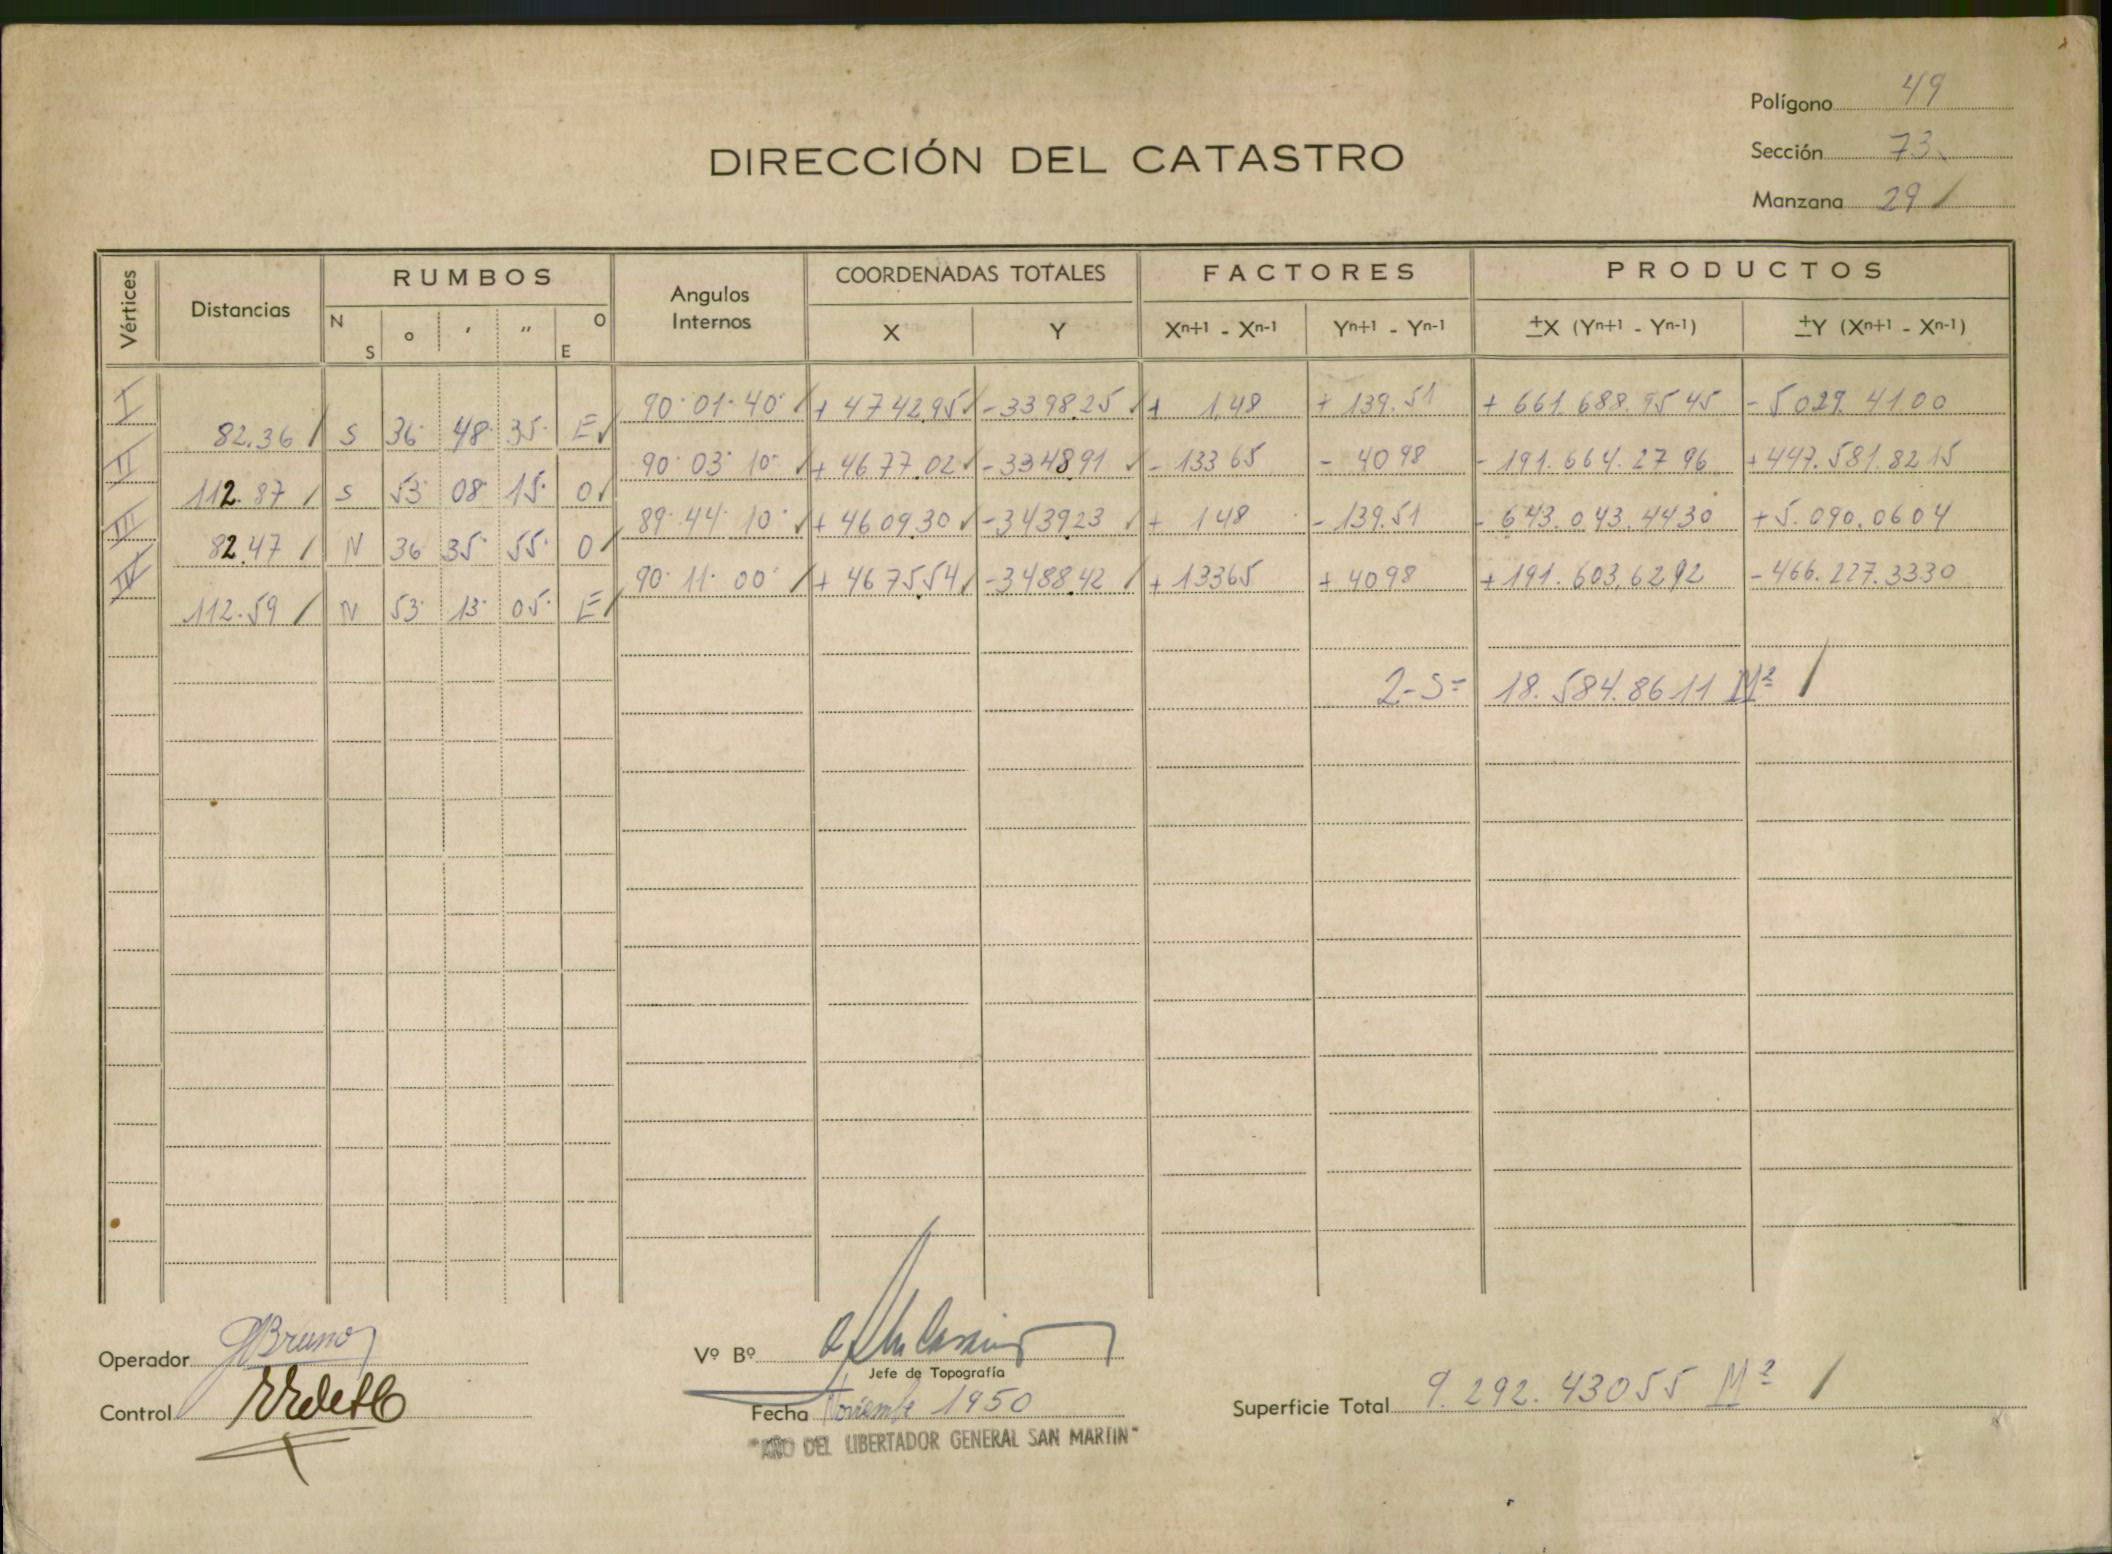 Polígono 49
DIRECCIÓN DEL CATASTRO
Sección 73.
Manzana 29 /
Vértices Distancias RUMBOS Angulos Internos COORDENADAS TOTALES FACTORES PRODUCTOS
N S ° ' " O E X Y Xn+1 - Xn-1 Yn+1 - Yn-1 ±X (Yn+1 - Yn-1) ±Y (Xn+1 - Xn-1)
I 90° 01' 40" + 4742.95 -3398.25 + 1.48 + 139.51 + 661.688.9545 - 5029.4100
82.36 / S 36° 48' 35" E
II 90° 03' 10" + 4677.02 -3348.91 - 133 65 - 40 98 - 191.664.27 96 + 447.581.8215
112.87 / S 53° 08' 15" O
III 89° 44' 10" + 4609.30 -3439.23 + 148 - 139.51 - 643.043.4430 + 5.090.0604
82.47 / N 36 35' 55" O
IV 90° 11' 00" + 4675.54 -3488.42 + 13365 + 4098 + 191.603,6292 - 466.227.3330
112.59 / N 53° 13' 05" E
2-S= 18.584.8611 M² /
Operador JBruno
Vº Bº
Jefe de Topografía
Control
Fecha Noviembre 1950
Superficie Total 9.292.43055 M² /
"AÑO DEL LIBERTADOR GENERAL SAN MARTIN"